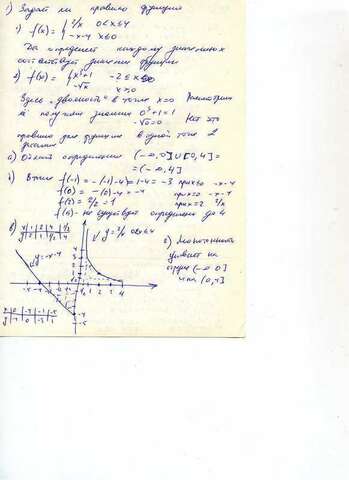 1) Задает ли правило функцию
1) f(x) = { 2/x 0<x≤4
-x-4 x≤0
Да определяет каждому значению x
соответствует значение функции
2) f(x) = { x³+1 -2≤x≤0
-√x x≥0
Здесь "двойность" в точке x=0
и получим значения 0³+1=1
-√0=0 Нет это
правило для функции в одной точке 2
значения
а) Область определения (-∞,0]∪[0,4]=
=(-∞,4]
б) f(-1) = -(-1)-4=1-4=-3 при x≤0 -x-4
f(0) = -(0)-4=-4 при x=0 -x-4
f(2) = 2/2=1 при x=2 2/x
f(5) - не существует определена до 4
в) x 1 2 4 1/2
y=2/x 0<x≤4
y=-x-4
x 0 -4 -1 -5
y -4 0 -3 1
г) Монотонность
убывает на
(-∞ 0]
и на (0,4]